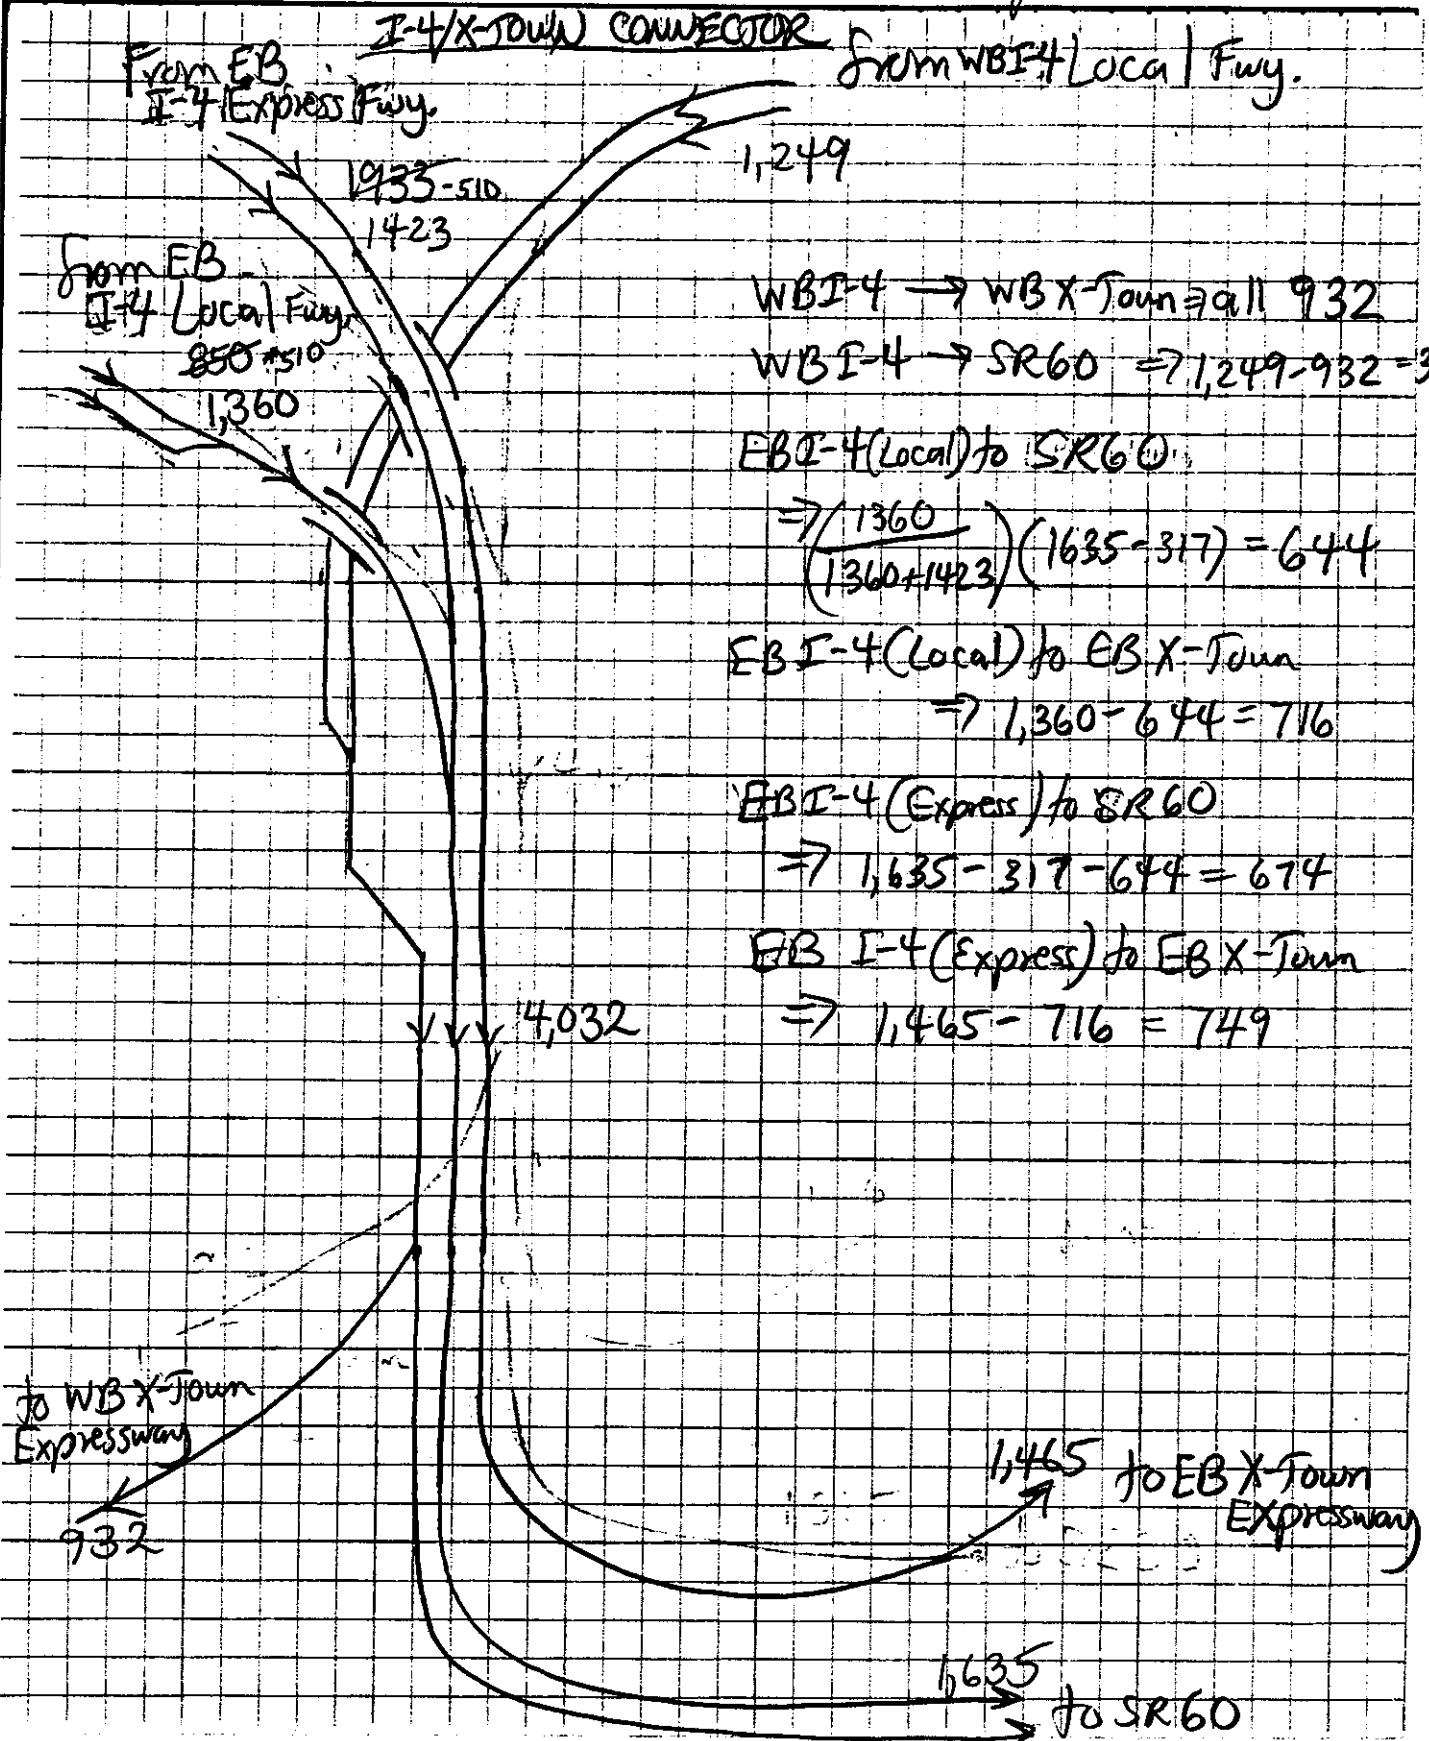 I-4/X-TOWN CONNECTOR
From EB
I-4 Express Fwy.
from WB I-4 Local Fwy.
1,249
1933-510
1423
from EB
I-4 Local Fwy.
850+510
1,360
WB I-4 → WB X-Town ⇒ all 932
WB I-4 → SR60 ⇒ 1,249-932 = 3
EB I-4 (Local) to SR60
⇒ (1360 / 1360+1423) (1635-317) = 644
EB I-4 (Local) to EB X-Town
⇒ 1,360 - 644 = 716
EB I-4 (Express) to SR60
⇒ 1,635 - 317 - 644 = 674
EB I-4 (Express) to EB X-Town
⇒ 1,465 - 716 = 749
4,032
to WB X-Town
Expressway
932
1,465 to EB X-Town
Expressway
1,635
to SR60